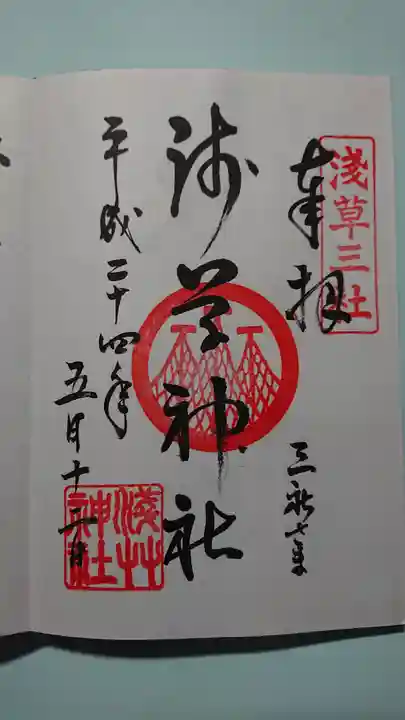 淺草三社
奉拝
三社さま
浅草神社
平成二十四年
五月十二日
淺草
神社